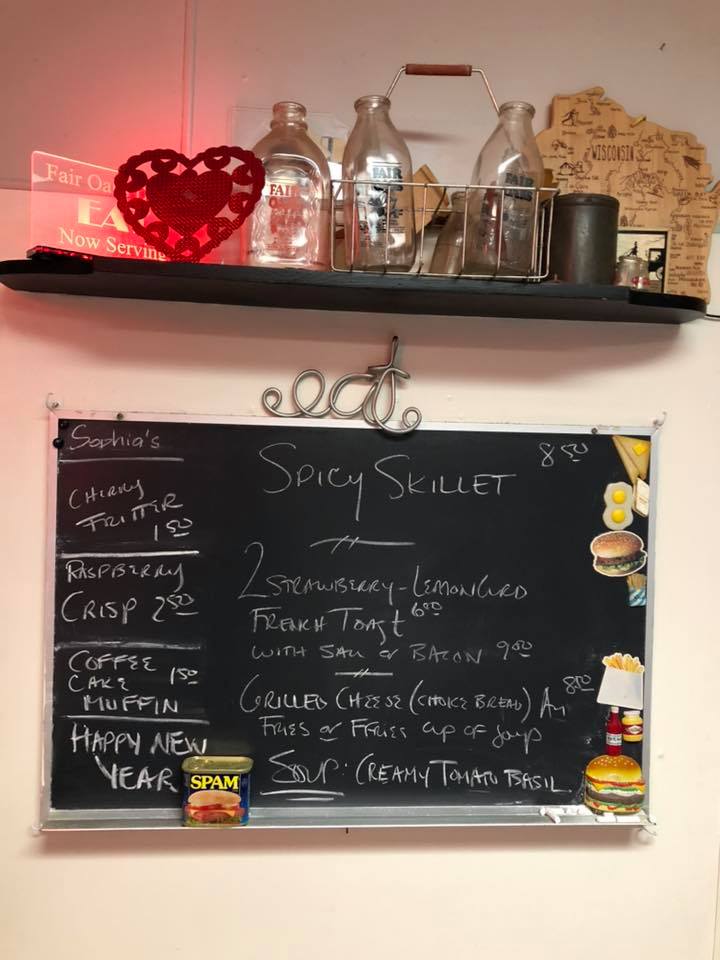 Fair Oa
EA
Now Serving
FAIR
OAKS
FAIR
OAKS
FAIR
OAKS
WISCONSIN
eat
Sophia's
CHERRY
FRITTER
1 50
RASPBERRY
CRISP 2 50
COFFEE
CAKE 1 50
MUFFIN
HAPPY NEW
YEAR
SPAM
SPICY SKILLET 8 50
2 STRAWBERRY-LEMON CURD
FRENCH TOAST 6 00
WITH SAU or BACON 9 00
GRILLED CHEESE (CHOICE BREAD) 8 00
FRIES or cup of Soup
SOUP: CREAMY TOMATO BASIL